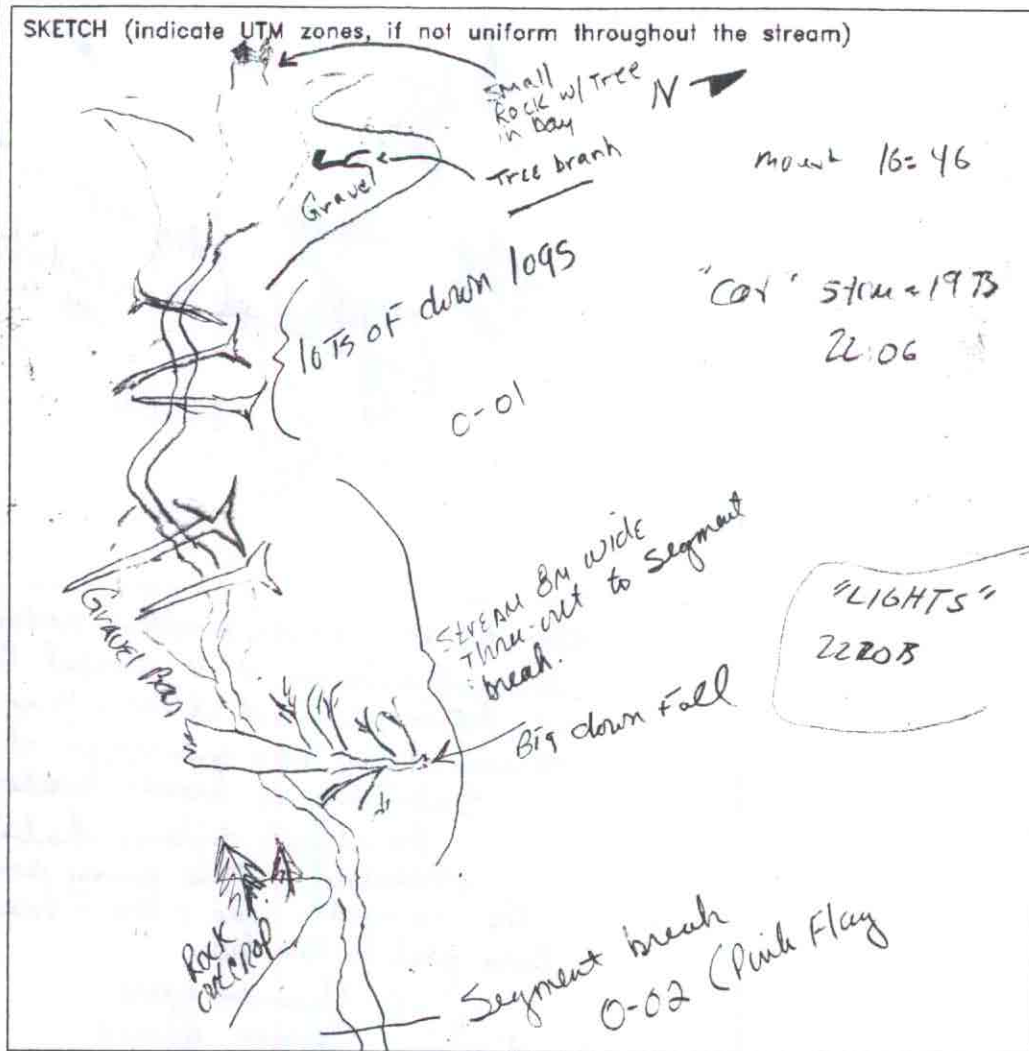 SKETCH (indicate UTM zones, if not uniform throughout the stream)
Small
Rock w/ Tree
in bay
N
Tree branh
Gravel
16=46
lots of down logs
22:06
0-01
Stream 8m wide
thru-out to segment
break.
"LIGHTS"
2220B
Gravel Bar
Big down Fall
Rock
outcrop
Segment break
0-02 (Pink Flag